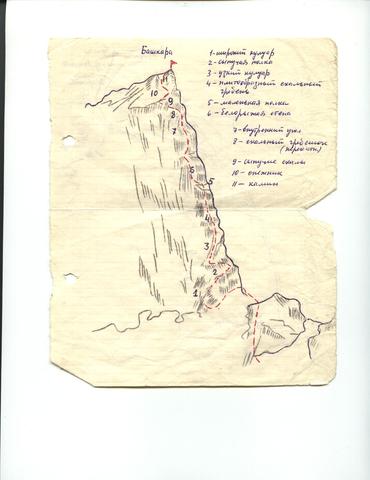 Башкара
1- широкий кулуар
2- сыпучая полка
3 - узкий кулуар
4 - плиткообразный скальный
гребень
5 - маленькая полка
6 - белорыжая стена
7 - внутренний угол
8 - скальный гребешок
9 - сыпучие скалы
10 - снежник
11 - камин
10
9
8
7
6
5
4
3
2
1